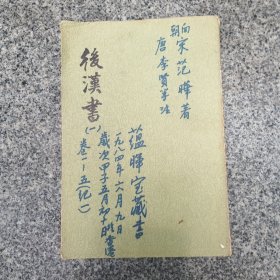 南
朝宋范曄著
唐李賢等注
後漢書
(一)
卷一—五(紀一)
蘊暉室藏書
一九八四年六月九日
歲次甲子五月初十日